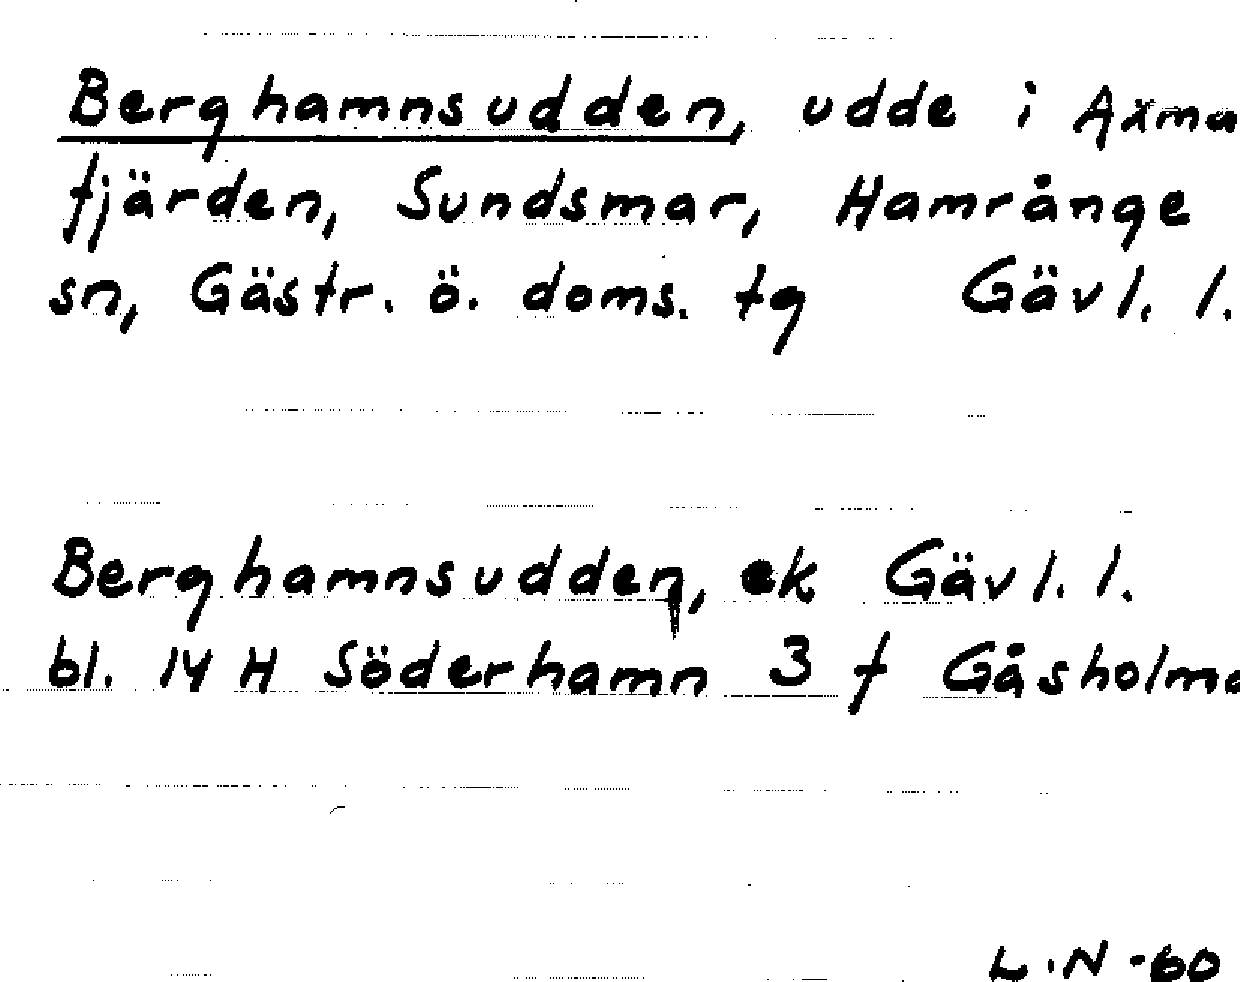 Berghamnsudden, udde i Axma
fjärden, Sundsmar, Hamrånge
sn, Gästr. ö. doms. tg Gävl. l.
Berghamnsudden, ek Gävl. l.
bl. 14 H Söderhamn 3 f Gåsholma
L.N -60